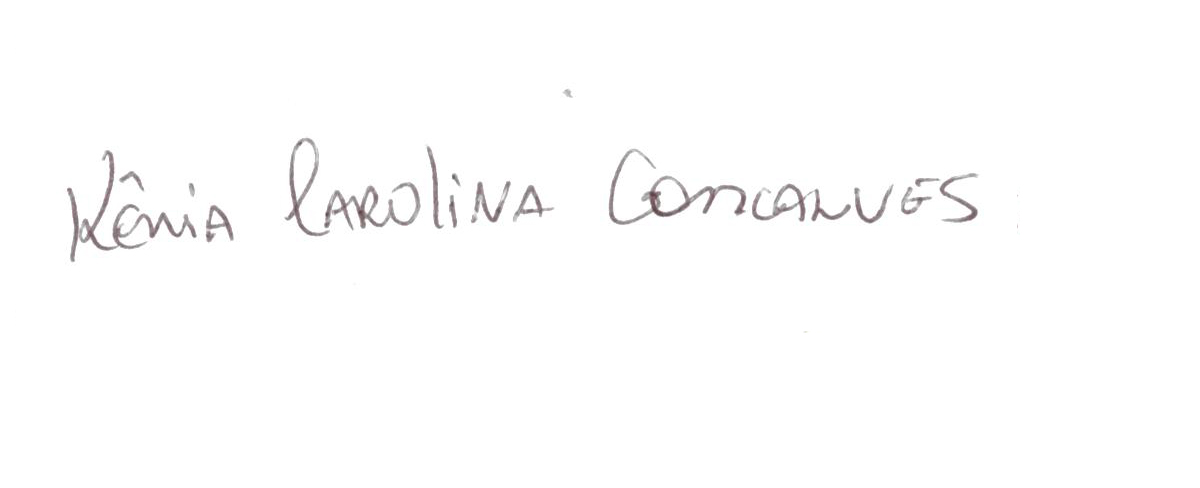 Kênia Carolina Goncalves